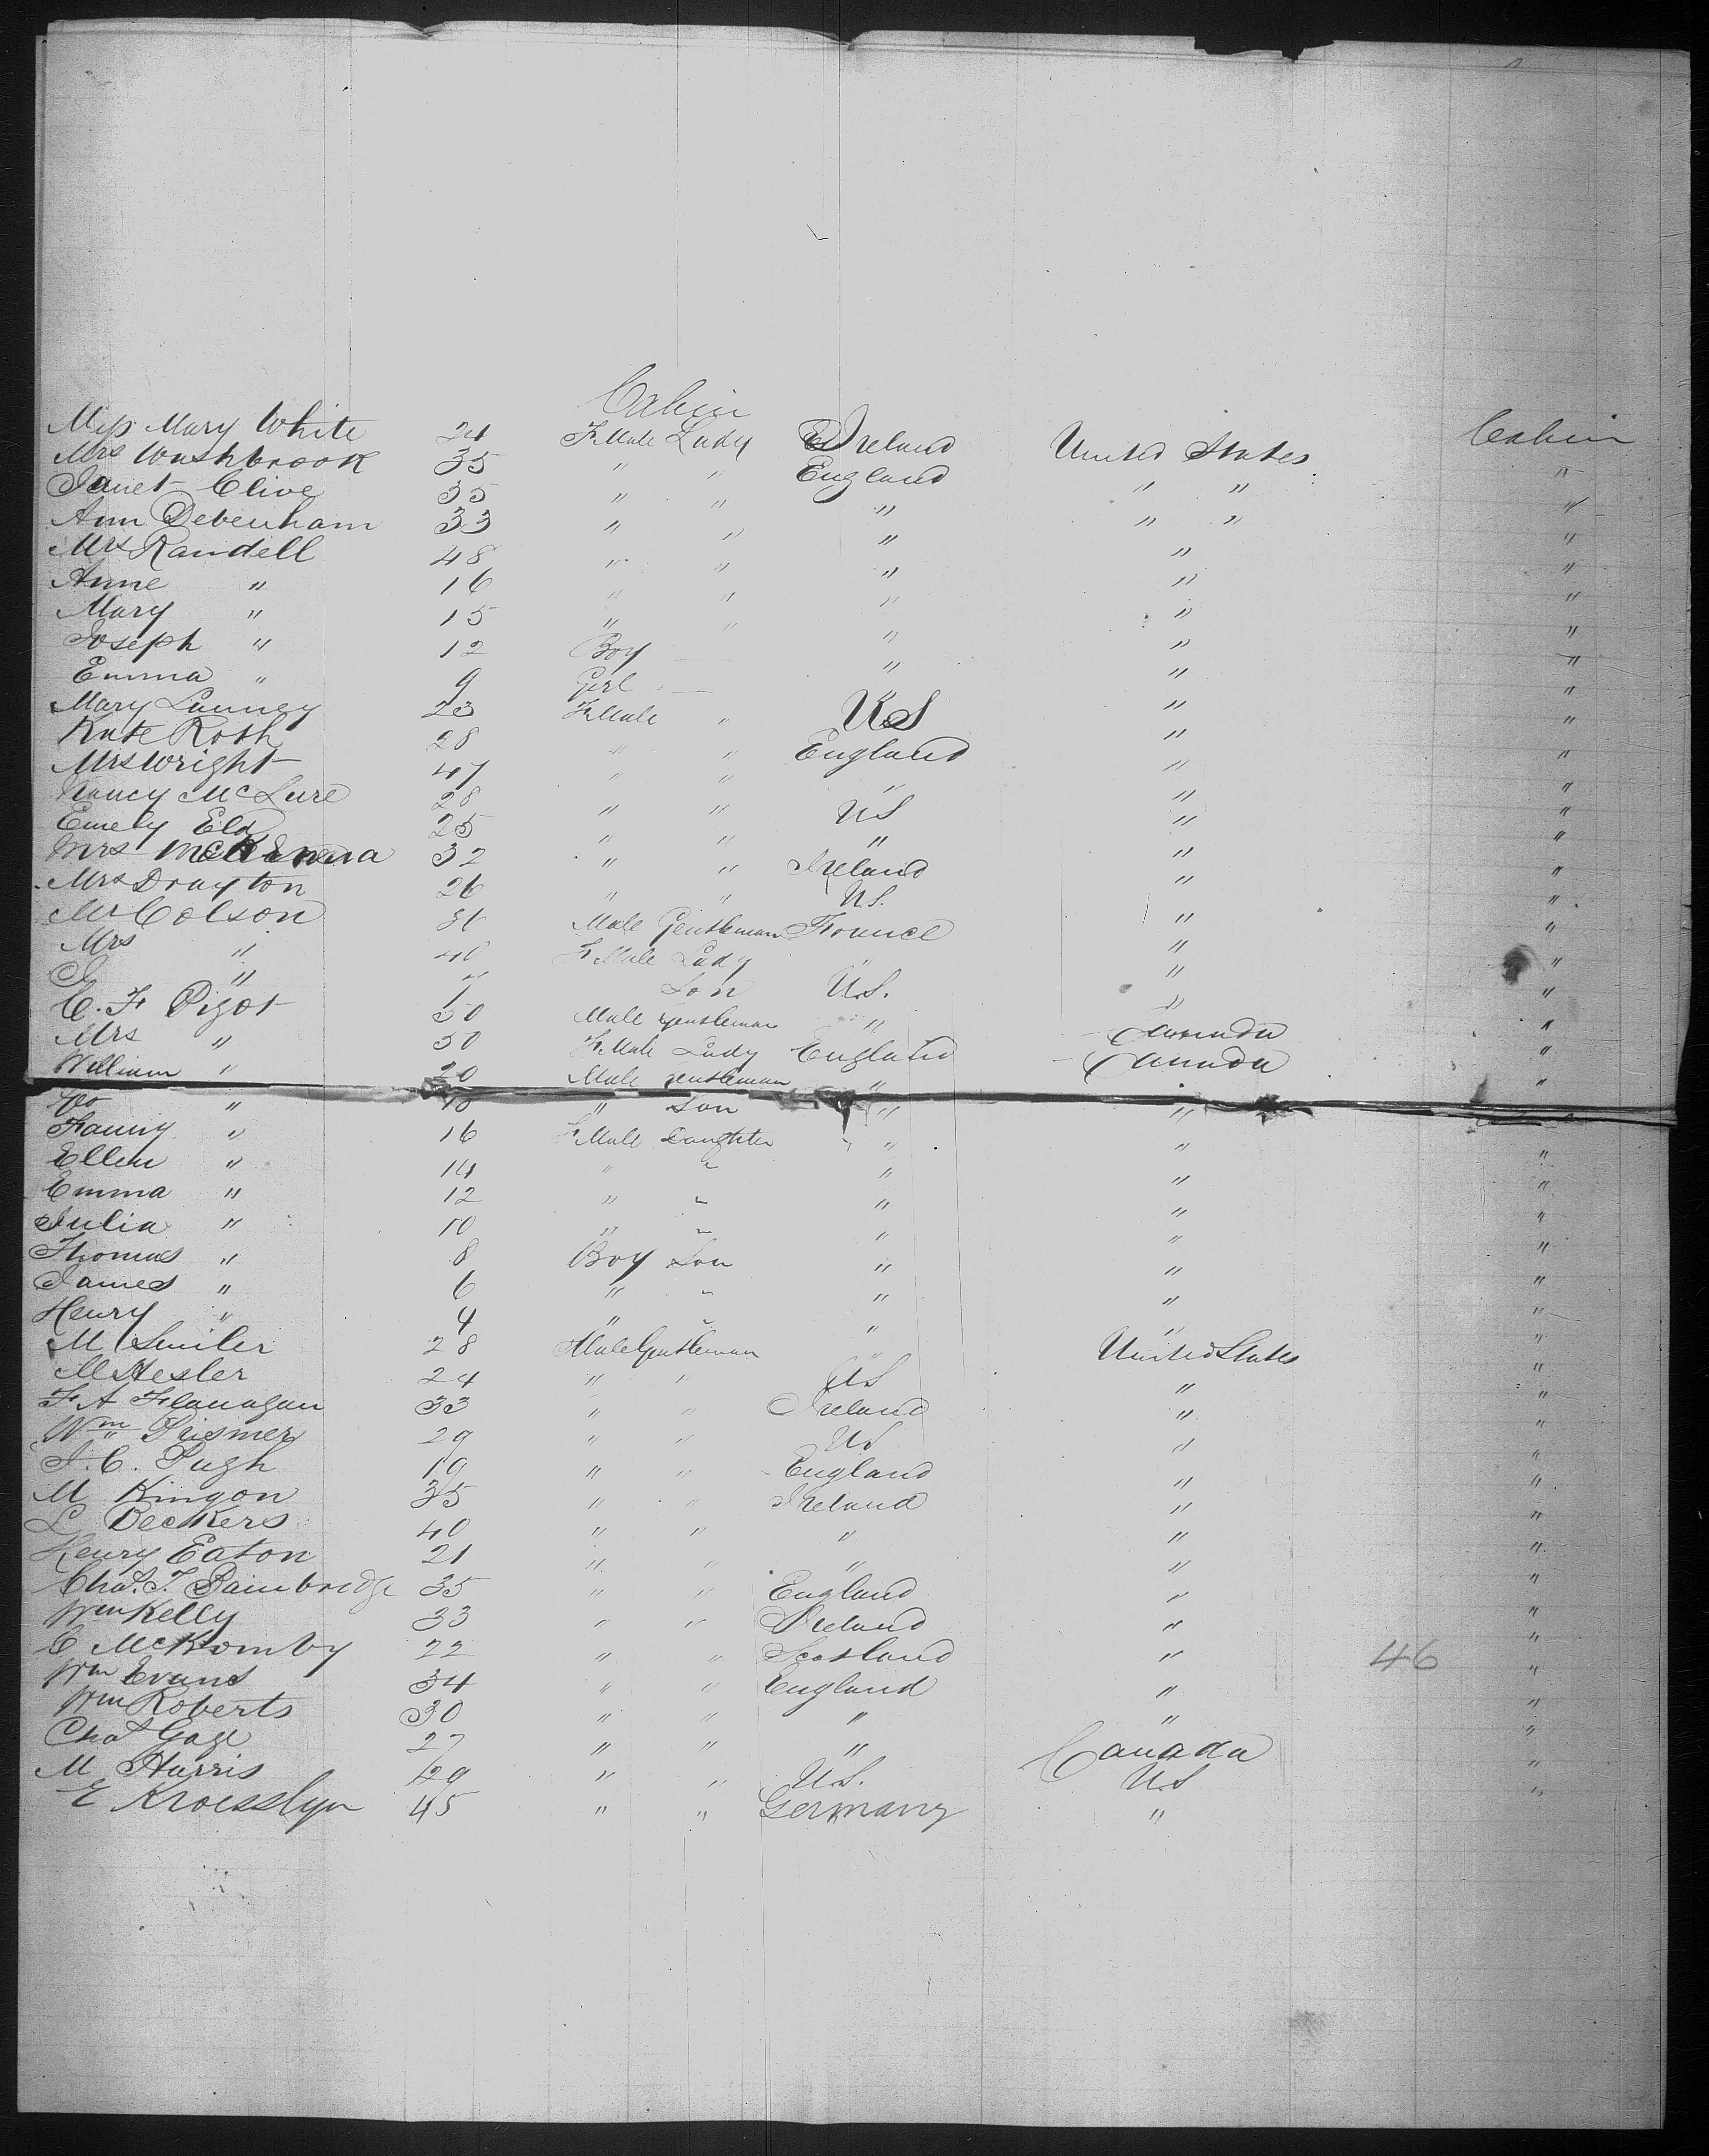 Cabin
Miss Mary White 24 F Male Lady Ireland United States Cabin
Mrs Washbrook 35 " " England " " "
Janet Clive 35 " " " " " "
Ann Debenham 33 " " " " "
Mrs Randell 48 " " " " "
Anne " 16 " " " " "
Mary " 15 " " " " "
Joseph " 12 Boy " " "
Emma " 9 Girl " " "
Mary Launey 23 F Male " US " "
Kate Roth 28 " " England " "
Mrs Wright 47 " " " " "
Nancy McLure 28 " " US " "
Emely Eld 25 " " " " "
Mrs 32 " " Ireland " "
Mrs Drayton 26 " " U.S. " "
Mr Colson Male Gentleman France " "
Mrs " 40 F Male Lady " "
J " Son U.S. " "
C. F Pigot 50 Male Gentleman " Canada "
Mrs " 50 F Male Lady England Canada "
William " 20 Male gentleman " "
Geo " " Son " "
Fanny " 16 F Male Daughter " " "
Ellen " 14 " " " " "
Emma " 12 " " " " "
Julia " 10 " " " " "
Thomas " 8 Boy Son " " "
James " 6 " " " " "
Henry " 4 " " " " "
M Smiler 28 Male Gentleman " United States "
M Hesler 24 " " US " "
F A Flanagan 33 " " Ireland " "
Wm Prismer 29 " " US " "
J. C. Pugh 19 " " England " "
M Kingon 35 " " Ireland " "
L Deckers 40 " " " " "
Henry Eaton 21 " " " " "
Chas. T. Bainbridge 35 " " England " "
Wm Kelly 33 " " Ireland " "
C McKomby 22 " " Scotland " 46 "
Wm Evans 34 " " England " "
Wm Roberts 30 " " " " "
Chas Gage 27 " " " Canada "
M Harris 29 " " U.S. US "
E Kroesslyn 45 " " Germany "